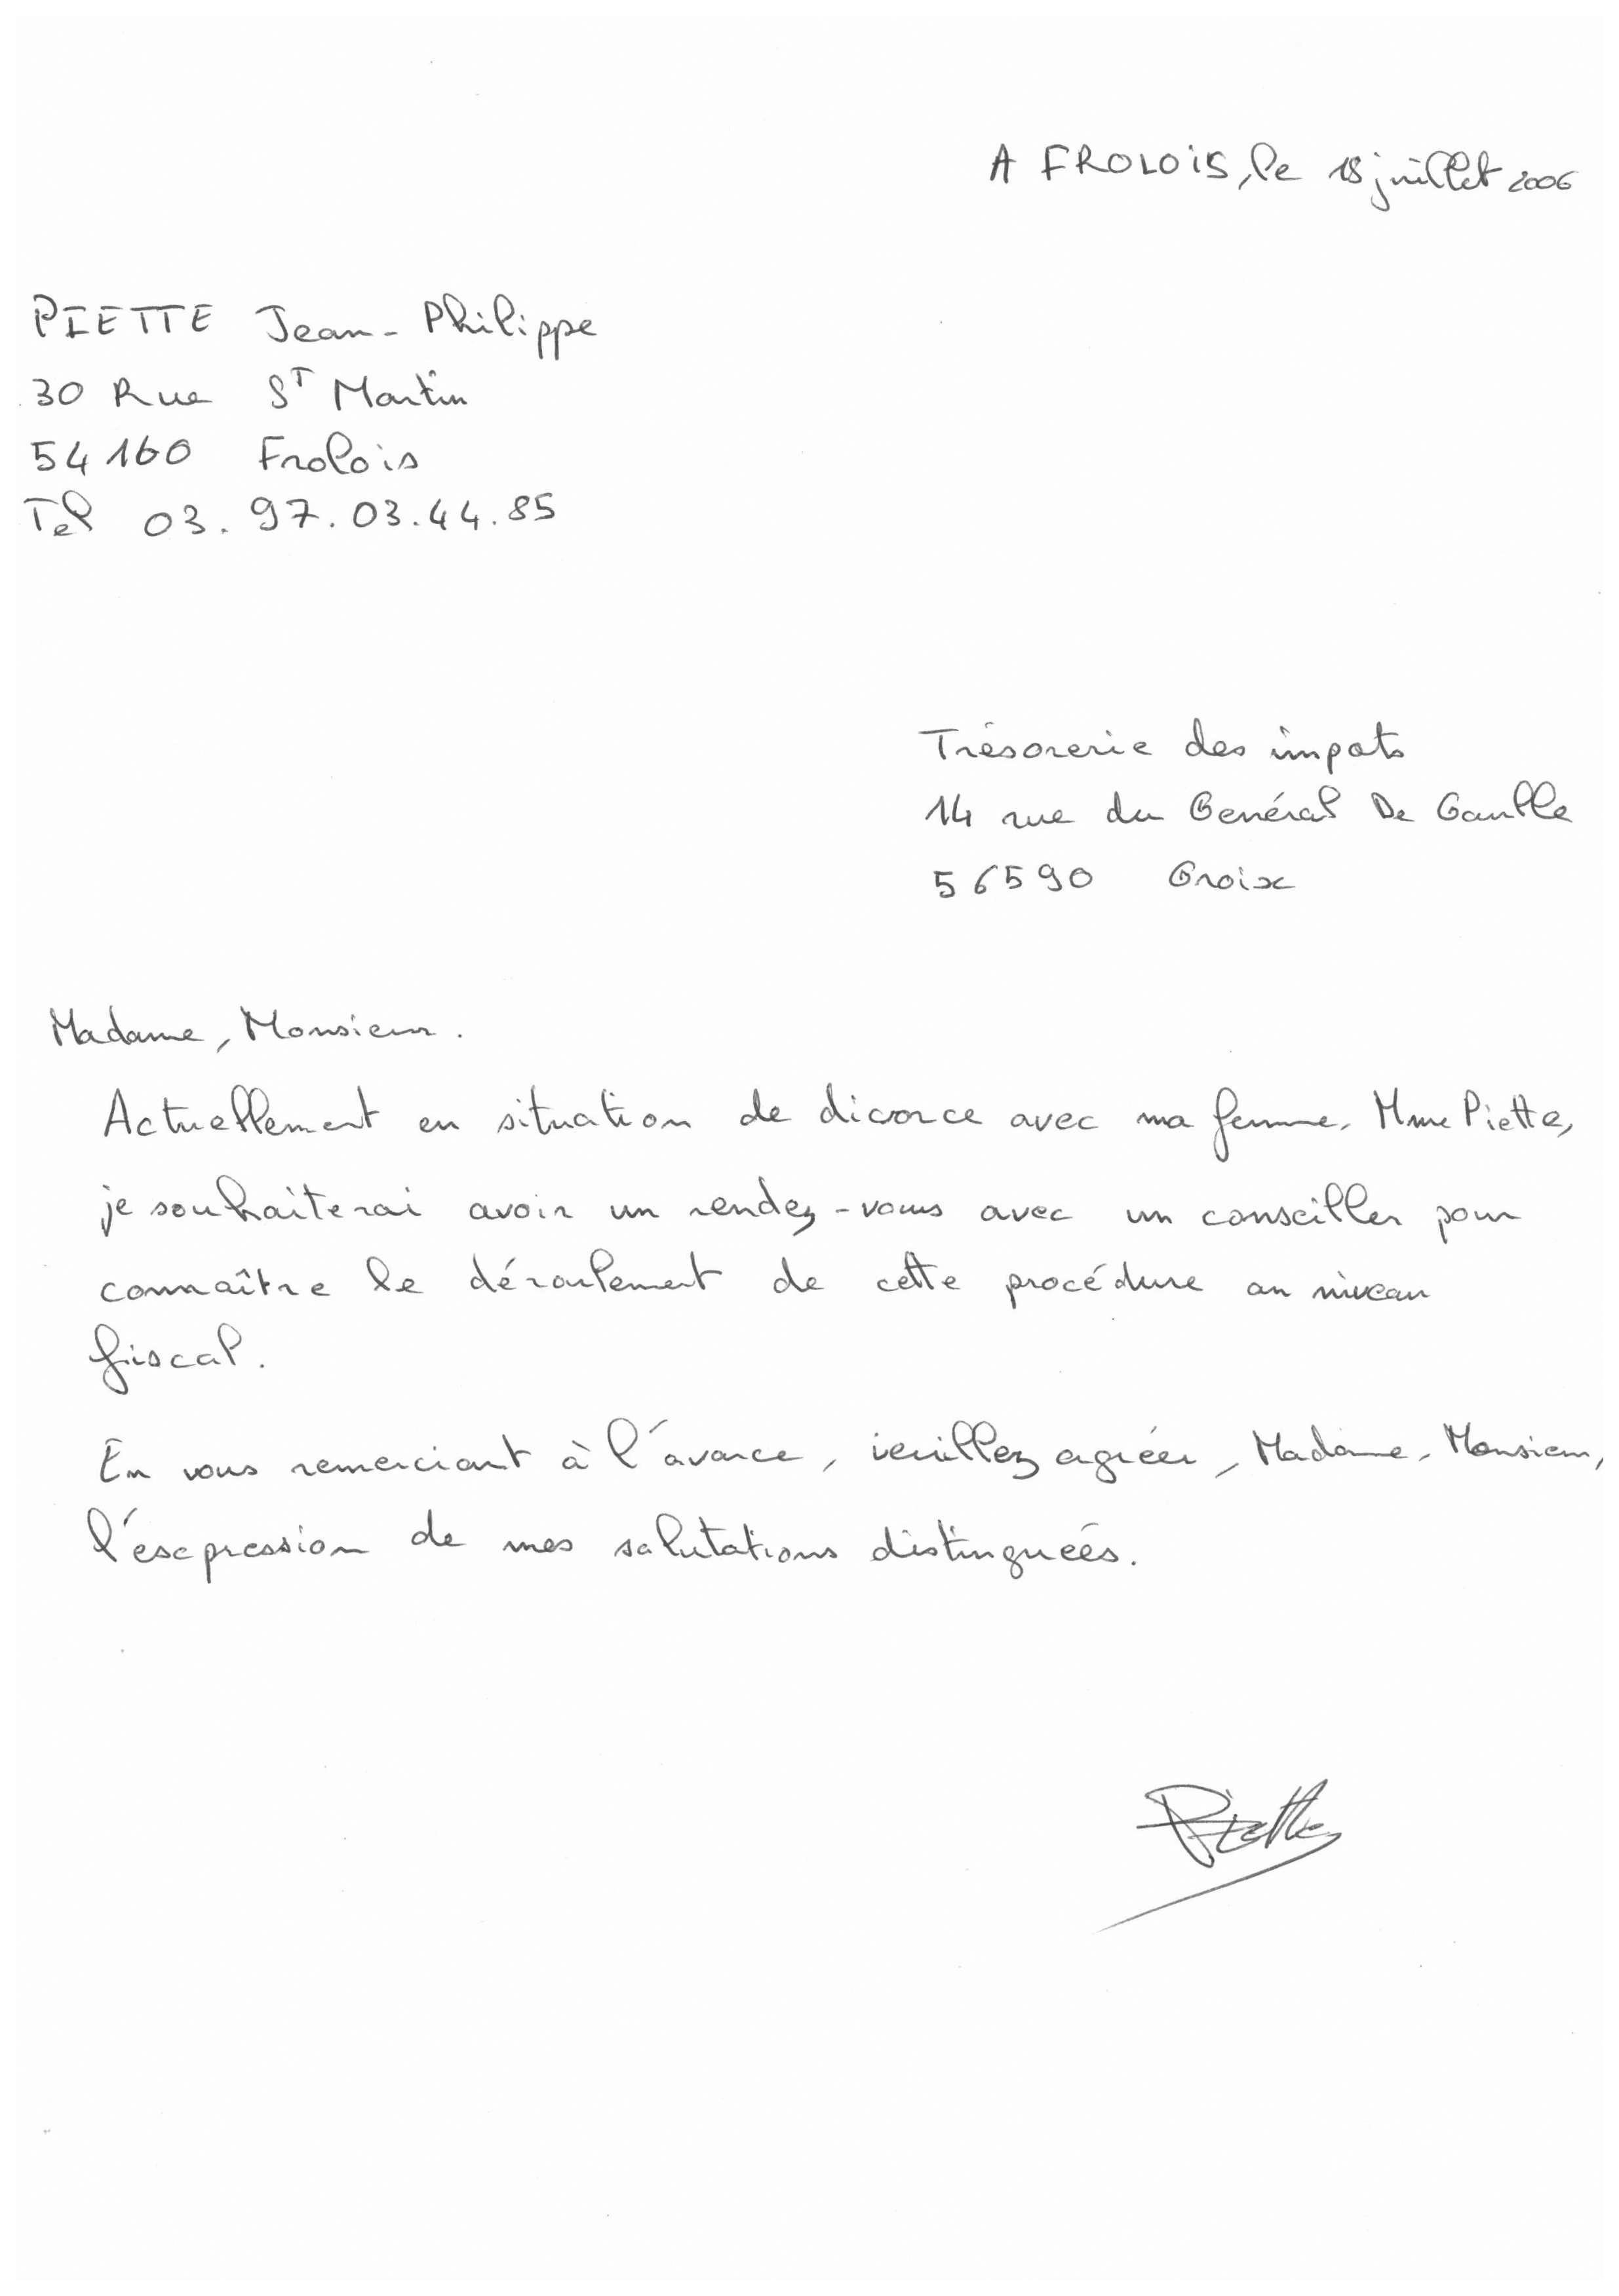 A FROLOIS, le 18 juillet 2006
PIETTE Jean-Philippe
30 Rue ST Martin
54160 Frolois
Tel 03.97.03.44.85
Trésorerie des impots
14 rue du Général De Gaulle
56590 Groix
Madame, Monsieur.
Actuellement en situation de divorce avec ma femme, Mme Piette,
je souhaiterai avoir un rendez-vous avec un conseiller pour
connaître le déroulement de cette procédure au niveau
fiscal.
En vous remerciant à l'avance, veuillez agréer, Madame, Monsieur,
l'expression de mes salutations distinguées.
Piette